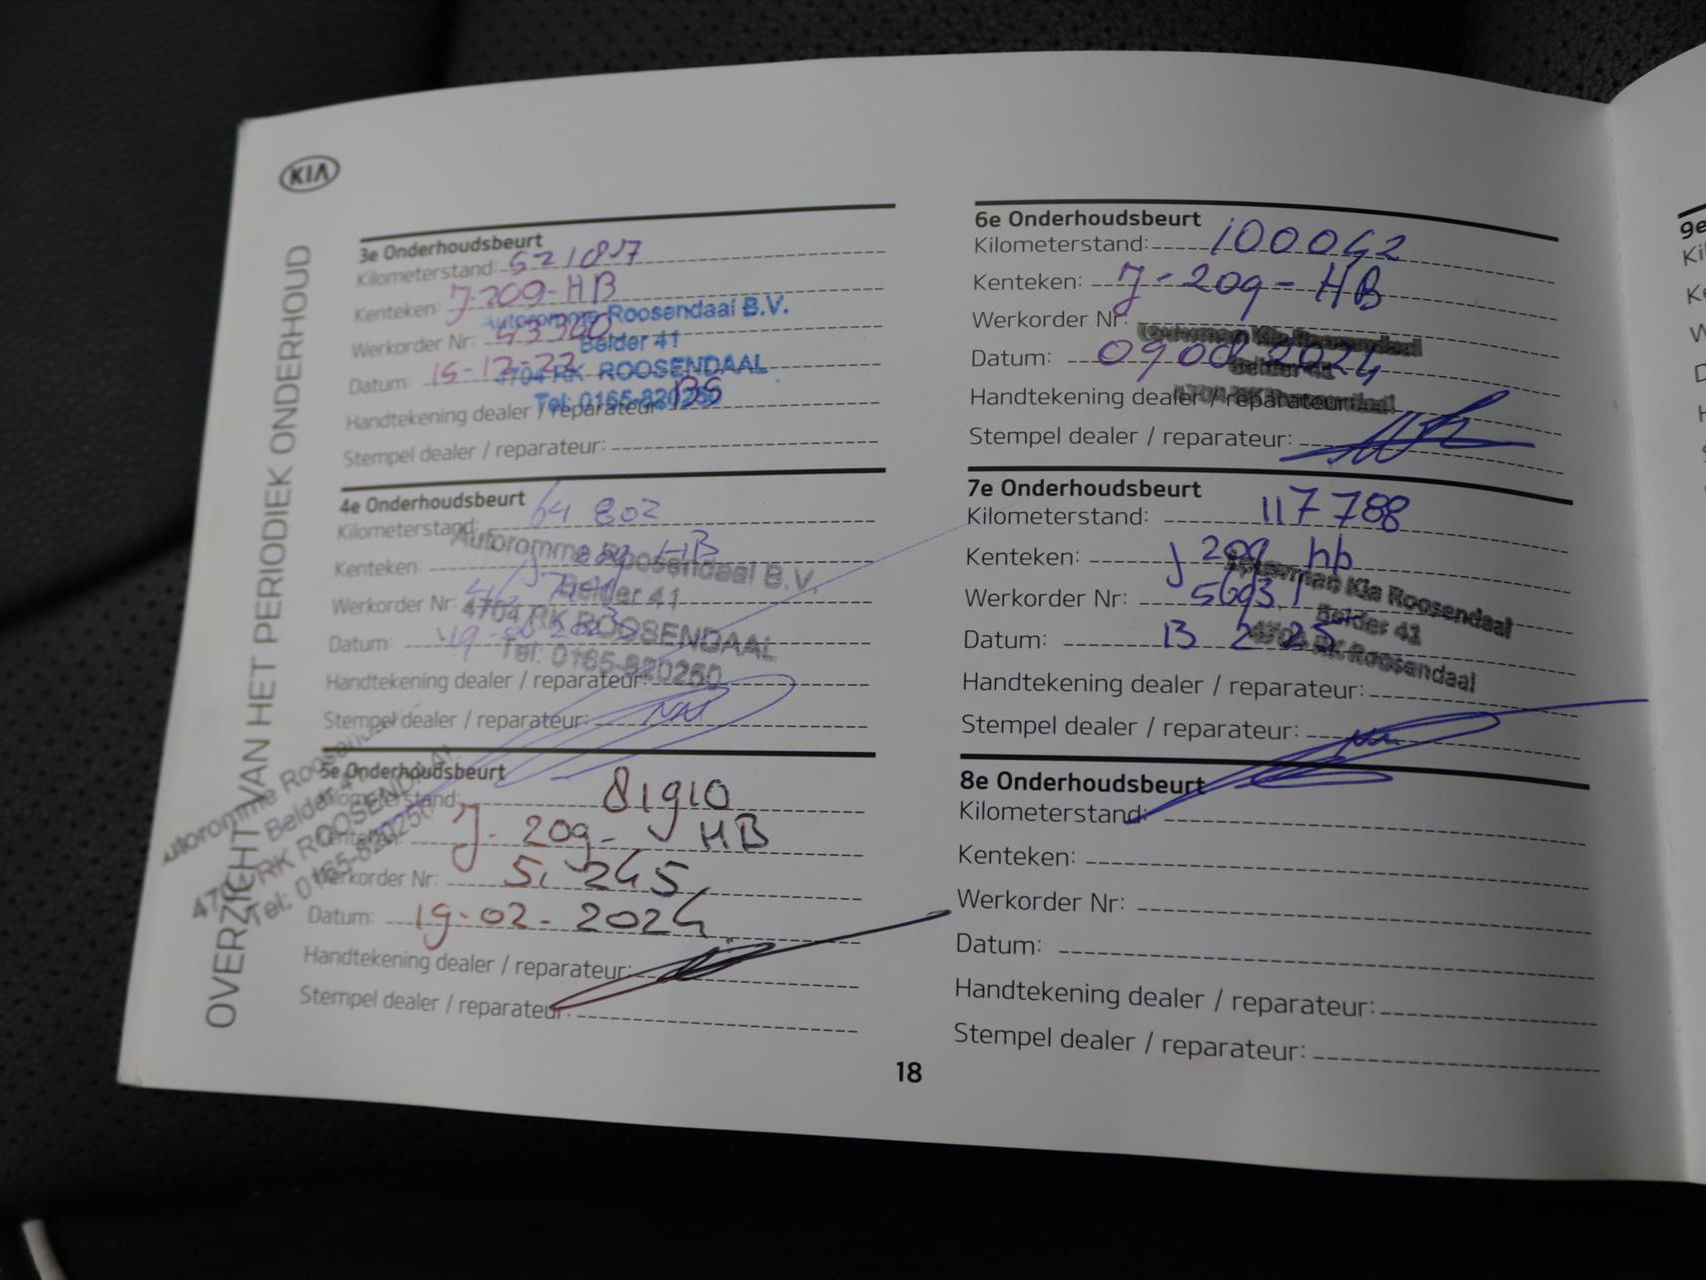 KIA
OVERZICHT VAN HET PERIODIEK ONDERHOUD
3e Onderhoudsbeurt
Kilometerstand:
Kenteken: J-209-HB
Autoromme Roosendaal B.V.
Werkorder Nr:
Belder 41
Datum: 15-12-22
4704 RK ROOSENDAAL
Tel: 0165-820250
Handtekening dealer / reparateur
Stempel dealer / reparateur:
4e Onderhoudsbeurt
Kilometerstand: 64 802
Autoromme Roosendaal B.V.
Kenteken: HB
Belder 41
Werkorder Nr:
4704 RK ROOSENDAAL
Datum:
Tel: 0165-820250
Handtekening dealer / reparateur:
Stempel dealer / reparateur:
Autoromme Roosendaal
Belder 41
4704 RK ROOSENDAAL
Tel: 0165-820250
5e Onderhoudsbeurt
Kilometerstand: 81910
Kenteken: J-209-HB
Werkorder Nr: 51 245
Datum: 19-02-2024
Handtekening dealer / reparateur:
Stempel dealer / reparateur:
6e Onderhoudsbeurt
Kilometerstand: 100042
Kenteken: J-209-HB
Werkorder Nr:
Kia Roosendaal
Datum: 2024
Belder 41
4704 RK Roosendaal
Handtekening dealer / reparateur:
Stempel dealer / reparateur:
7e Onderhoudsbeurt
Kilometerstand: 117 788
Kenteken: J 209 hb
Kia Roosendaal
Werkorder Nr: 56931
Belder 41
Datum: 13 2 25
4704 RK Roosendaal
Handtekening dealer / reparateur:
Stempel dealer / reparateur:
8e Onderhoudsbeurt
Kilometerstand:
Kenteken:
Werkorder Nr:
Datum:
Handtekening dealer / reparateur:
Stempel dealer / reparateur:
18
9e